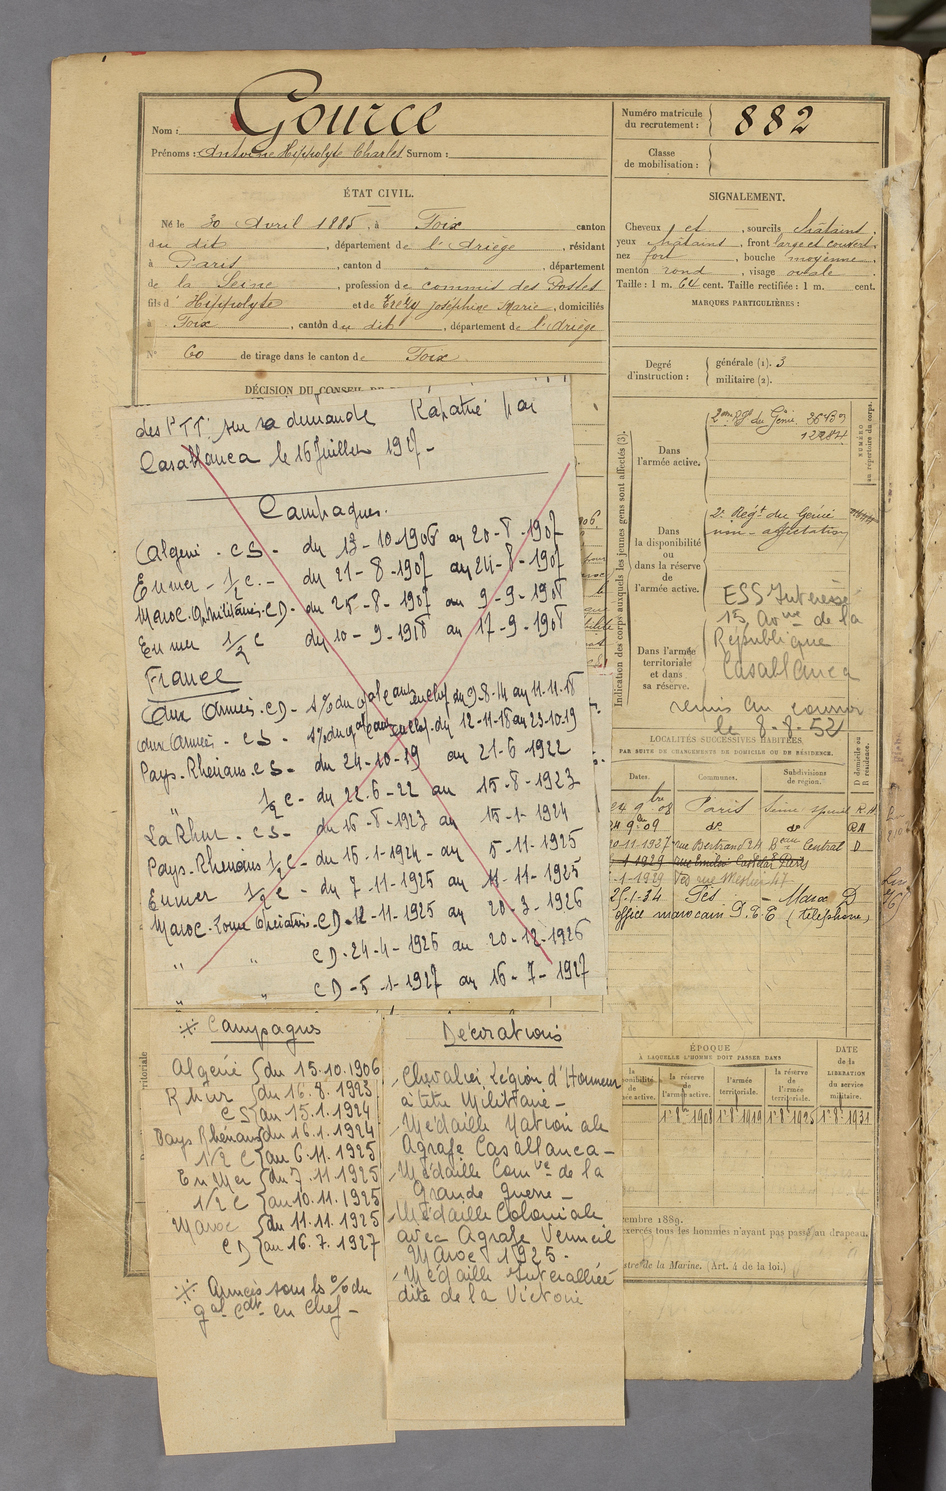 Nom : Gource
Prénoms : Antoine Hippolyte Charles Surnom :
ÉTAT CIVIL.
Né le 30 Avril 1885, à Foix canton
du dit, département de l'Ariège, résidant
à Paris, canton d , département
de la Seine, profession de commis des Postes
fils d' Hippolyte et de Joséphine Marie, domiciliés
à Foix, canton du dit, département de l'Ariège
N° 60 de tirage dans le canton de Foix
DÉCISION DU CONSEIL DE
Numéro matricule
du recrutement : 882
Classe
de mobilisation :
SIGNALEMENT.
Cheveux et, sourcils châtains
yeux châtains, front large et couvert
nez fort, bouche moyenne
menton rond, visage ovale
Taille : 1 m. 64 cent. Taille rectifiée : 1 m. cent.
MARQUES PARTICULIÈRES :
Degré
d'instruction :
générale (1). 3
militaire (2).
Indication des corps auxquels les jeunes gens sont affectés (3).
NUMÉRO
au répertoire du corps.
Dans
l'armée active.
du Génie
Dans
la disponibilité
ou
dans la réserve
de
l'armée active.
2e Régt du Génie
non-affectation
Dans l'armée
territoriale
et dans
sa réserve.
ESS Intéressé
15, Avue de la
République
Casablanca
remis au courrier
le 8-8-52
LOCALITÉS SUCCESSIVES HABITÉES
PAR SUITE DE CHANGEMENTS DE DOMICILE OU DE RÉSIDENCE.
Dates. Communes. Subdivisions de région. D domicile ou R résidence.
24 9bre 08 Paris Seine R.A
24 9bre 09 do do RA
10-11-1927 rue Bertrand 24 Beau Central D
1-1929 rue Paris
-1-1929
25-1-34 Fès - Maroc D
office marocain P.T.T (téléphone)
ÉPOQUE
À LAQUELLE L'HOMME DOIT PASSER DANS
la disponibilité de l'armée active.
la réserve de l'armée active.
l'armée territoriale.
la réserve de l'armée territoriale.
DATE
de la
LIBÉRATION
du service
militaire.
1er 8bre 1908 1er 8bre 1919 1er 8bre 1925 1er 8bre 1931
embre 1889.
exercés tous les hommes n'ayant pas passé au drapeau.
stre de la Marine. (Art. 4 de la loi.)
des PTT. sur sa demande Rapatrié par
Casablanca le 16 Juillet 1927-
Campagnes.
Algérie - CS - du 13-10-1906 au 20-8-1907
En mer - 1/2 C. - du 21-8-1907 au 24-8-1907
Maroc. Op. Militaires - CD - du 25-8-1907 au 9-9-1908
En mer 1/2 C du 10-9-1908 au 17-9-1908
France
Aux Armées - CD - s/% du gal Ct en chef du 9-8-14 au 11-11-18
Aux Armées - CS - s/% du gal Ct en chef. du 12-11-18 au 23-10-19
Pays-Rhénans. CS - du 24-10-19 au 21-6-1922
" 1/2 C - du 22-6-22 au 15-8-1923
La Rhur - CS - du 16-8-1923 au 15-1-1924
Pays-Rhénans 1/2 C - du 16-1-1924 - au 6-11-1925
En mer 1/2 C - du 7-11-1925 au 11-11-1925
Maroc - Zone - CD - 12-11-1925 au 20-3-1926
" " CD - 24-4-1926 au 20-12-1926
" " CD - 5-1-1927 au 16-7-1927
※ Campagnes
Algérie { du 15.10.1906
Rhur { du 16.8.1923
CS { au 15.1.1924
Pays Rhénans { du 16.1.1924
1/2 C { au 6.11.1925
En Mer { du 7.11.1925
1/2 C { au 10.11.1925
Maroc { du 11.11.1925
CD { au 16.7.1927
※ Armées sous le % du
gal cdt en chef -
Décorations
- Chevalier Légion d'Honneur
à titre Militaire -
- Médaille Nationale
Agrafe Casablanca -
- Médaille Comve de la
Grande guerre -
- Médaille Coloniale
avec Agrafe Vermeil
Maroc 1925.
- Médaille Interalliée
dite de la Victoire